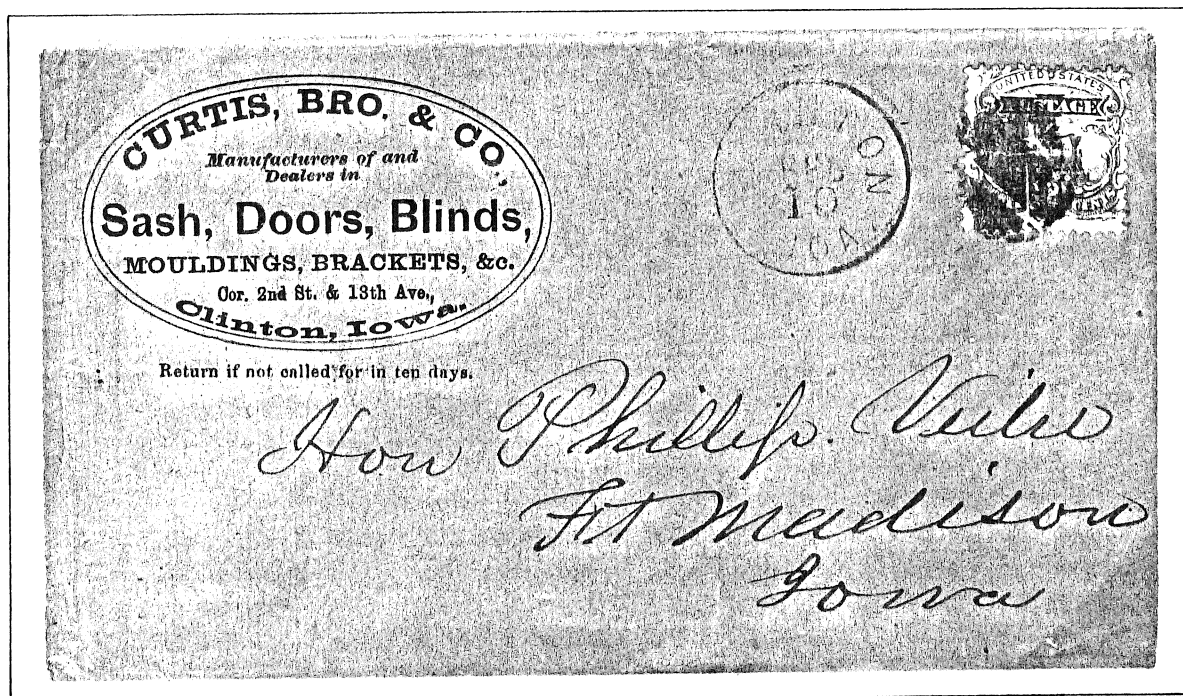 CURTIS, BRO. & CO.,
Manufacturers of and
Dealers in
Sash, Doors, Blinds,
MOULDINGS, BRACKETS, &c.
Cor. 2nd St. & 13th Ave.,
Clinton, Iowa.
Return if not called for in ten days.
10
UNITED STATES
POSTAGE
Hon Phillip. Veile
Ft Madison
Iowa